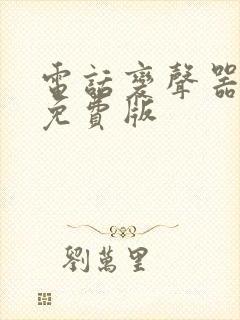 電話變聲器
免費版
劉萬里